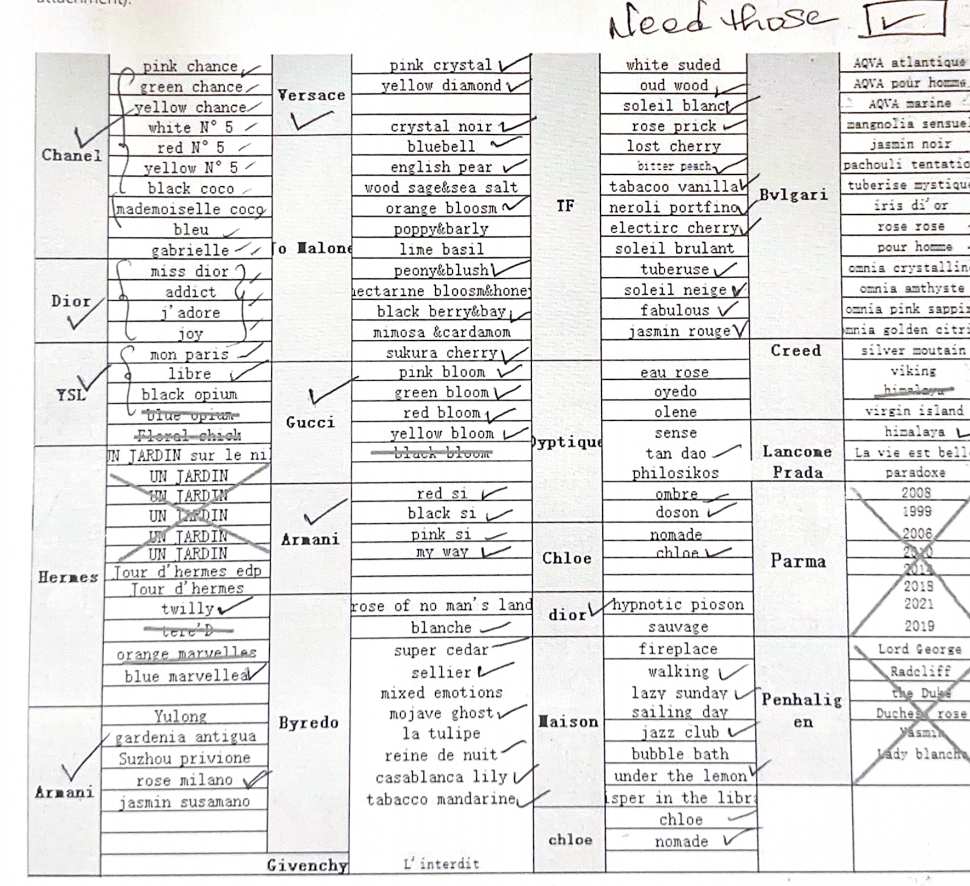 attachment).
Need those ✓
Chanel
pink chance ✓
green chance ✓
yellow chance ✓
white N° 5 ✓
red N° 5 ✓
yellow N° 5 ✓
black coco ✓
mademoiselle coco
bleu ✓
gabrielle ✓
Dior
miss dior
addict
j'adore
joy
YSL
mon paris
libre ✓
black opium
blue opium
Floral chick
Hermes
UN JARDIN sur le ni
UN JARDIN
UN JARDIN
UN JARDIN
UN JARDIN
UN JARDIN
Jour d'hermes edp
Jour d'hermes
twilly ✓
tere'D
orange marvelles
blue marvellea ✓
Armani
Yulong
gardenia antigua
Suzhou privione
rose milano ✓
jasmin susamano
Versace
pink crystal ✓
yellow diamond ✓
crystal noir ✓
Jo Malone
bluebell ✓
english pear ✓
wood sage&sea salt
orange bloosm ✓
poppy&barly
lime basil
peony&blush ✓
nectarine bloosm&hone
black berry&bay ✓
mimosa &cardamom
sukura cherry ✓
Gucci
pink bloom ✓
green bloom ✓
red bloom ✓
yellow bloom ✓
black bloom
Armani
red si ✓
black si ✓
pink si ✓
my way ✓
Byredo
rose of no man's land
blanche ✓
super cedar
sellier ✓
mixed emotions
mojave ghost ✓
la tulipe
reine de nuit ✓
casablanca lily ✓
tabacco mandarine ✓
Givenchy
L'interdit
TF
white suded
oud wood ✓
soleil blanc ✓
rose prick ✓
lost cherry
bitter peach ✓
tabacoo vanilla ✓
neroli portfino ✓
electirc cherry ✓
soleil brulant
tuberuse ✓
soleil neige ✓
fabulous ✓
jasmin rouge ✓
Dyptique
eau rose
oyedo
olene
sense
tan dao ✓
philosikos
ombre ✓
doson ✓
Chloe
nomade
chloe ✓
dior
hypnotic pioson
sauvage
Maison
fireplace
walking ✓
lazy sunday ✓
sailing day
jazz club ✓
bubble bath
under the lemon ✓
isper in the libra
chloe
chloe ✓
nomade ✓
Bvlgari
AQVA atlantique
AQVA pour homme
AQVA marine
mangnolia sensuel
jasmin noir
pachouli tentatio
tuberise mystique
iris di'or
rose rose
pour homme
omnia crystalline
omnia amthyste
omnia pink sappi
mnia golden citri
Creed
silver moutain
viking
himalaya
virgin island
himalaya ✓
Lancome
La vie est bell
Prada
paradoxe
Parma
2008
1999
2006
2014
2018
2021
2019
Penhalig
en
Lord George
Radcliff
the Duke
Duches rose
Yasmin
Lady blanche